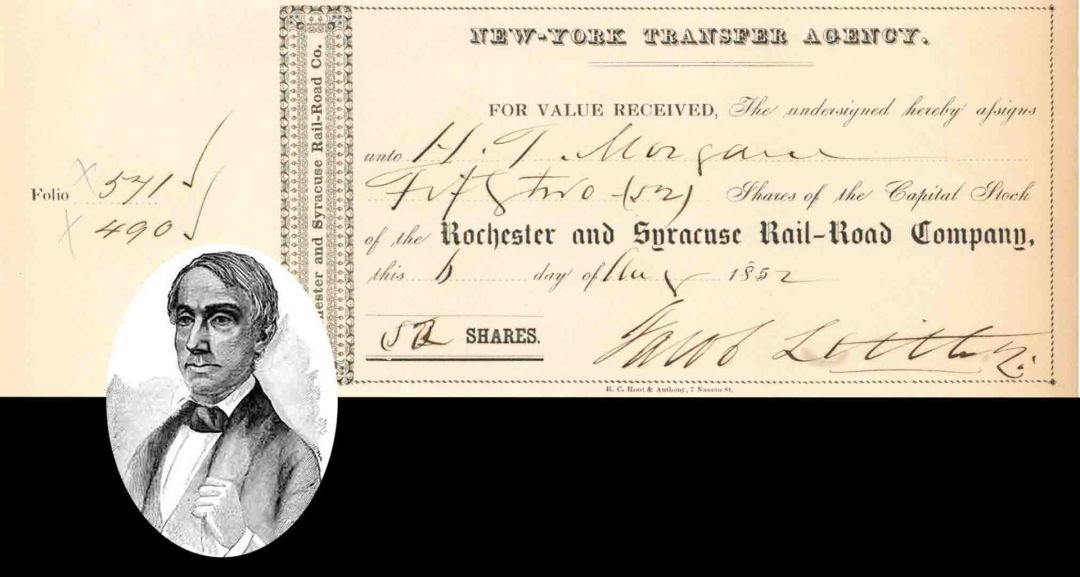 NEW-YORK TRANSFER AGENCY.
FOR VALUE RECEIVED, The undersigned hereby assigns
unto H. T. Morgan
Fifty two (52) Shares of the Capital Stock
of the Rochester and Syracuse Rail-Road Company,
this 6 day of Aug 1852
52 SHARES.
Jacob Little
R. C. Root & Anthony, 7 Nassau St.
Folio 571
490
hester and Syracuse Rail-Road Co.